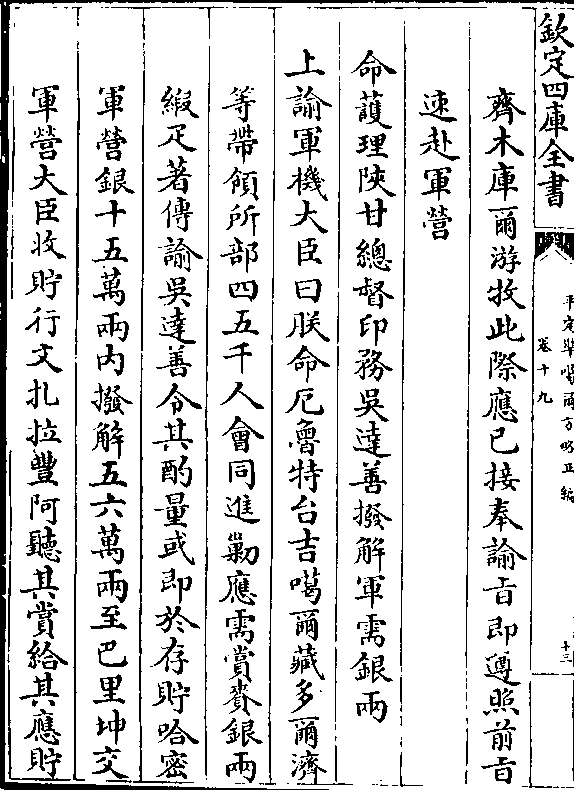 欽定四庫全書
平定準噶爾方略正編
卷十九
十三
齊木庫爾游牧此際應已接奉諭旨即遵照前旨
速赴軍營
命護理陝甘總督印務吳達善撥解軍需銀兩
上諭軍機大臣曰朕命厄魯特台吉噶爾藏多爾濟
等帶領所部四五千人會同進勦應需賞賚銀兩
緞疋著傳諭吳達善令其酌量或即於存貯哈密
軍營銀十五萬兩內撥解五六萬兩至巴里坤交
軍營大臣收貯行文扎拉豐阿聽其賞給其應貯